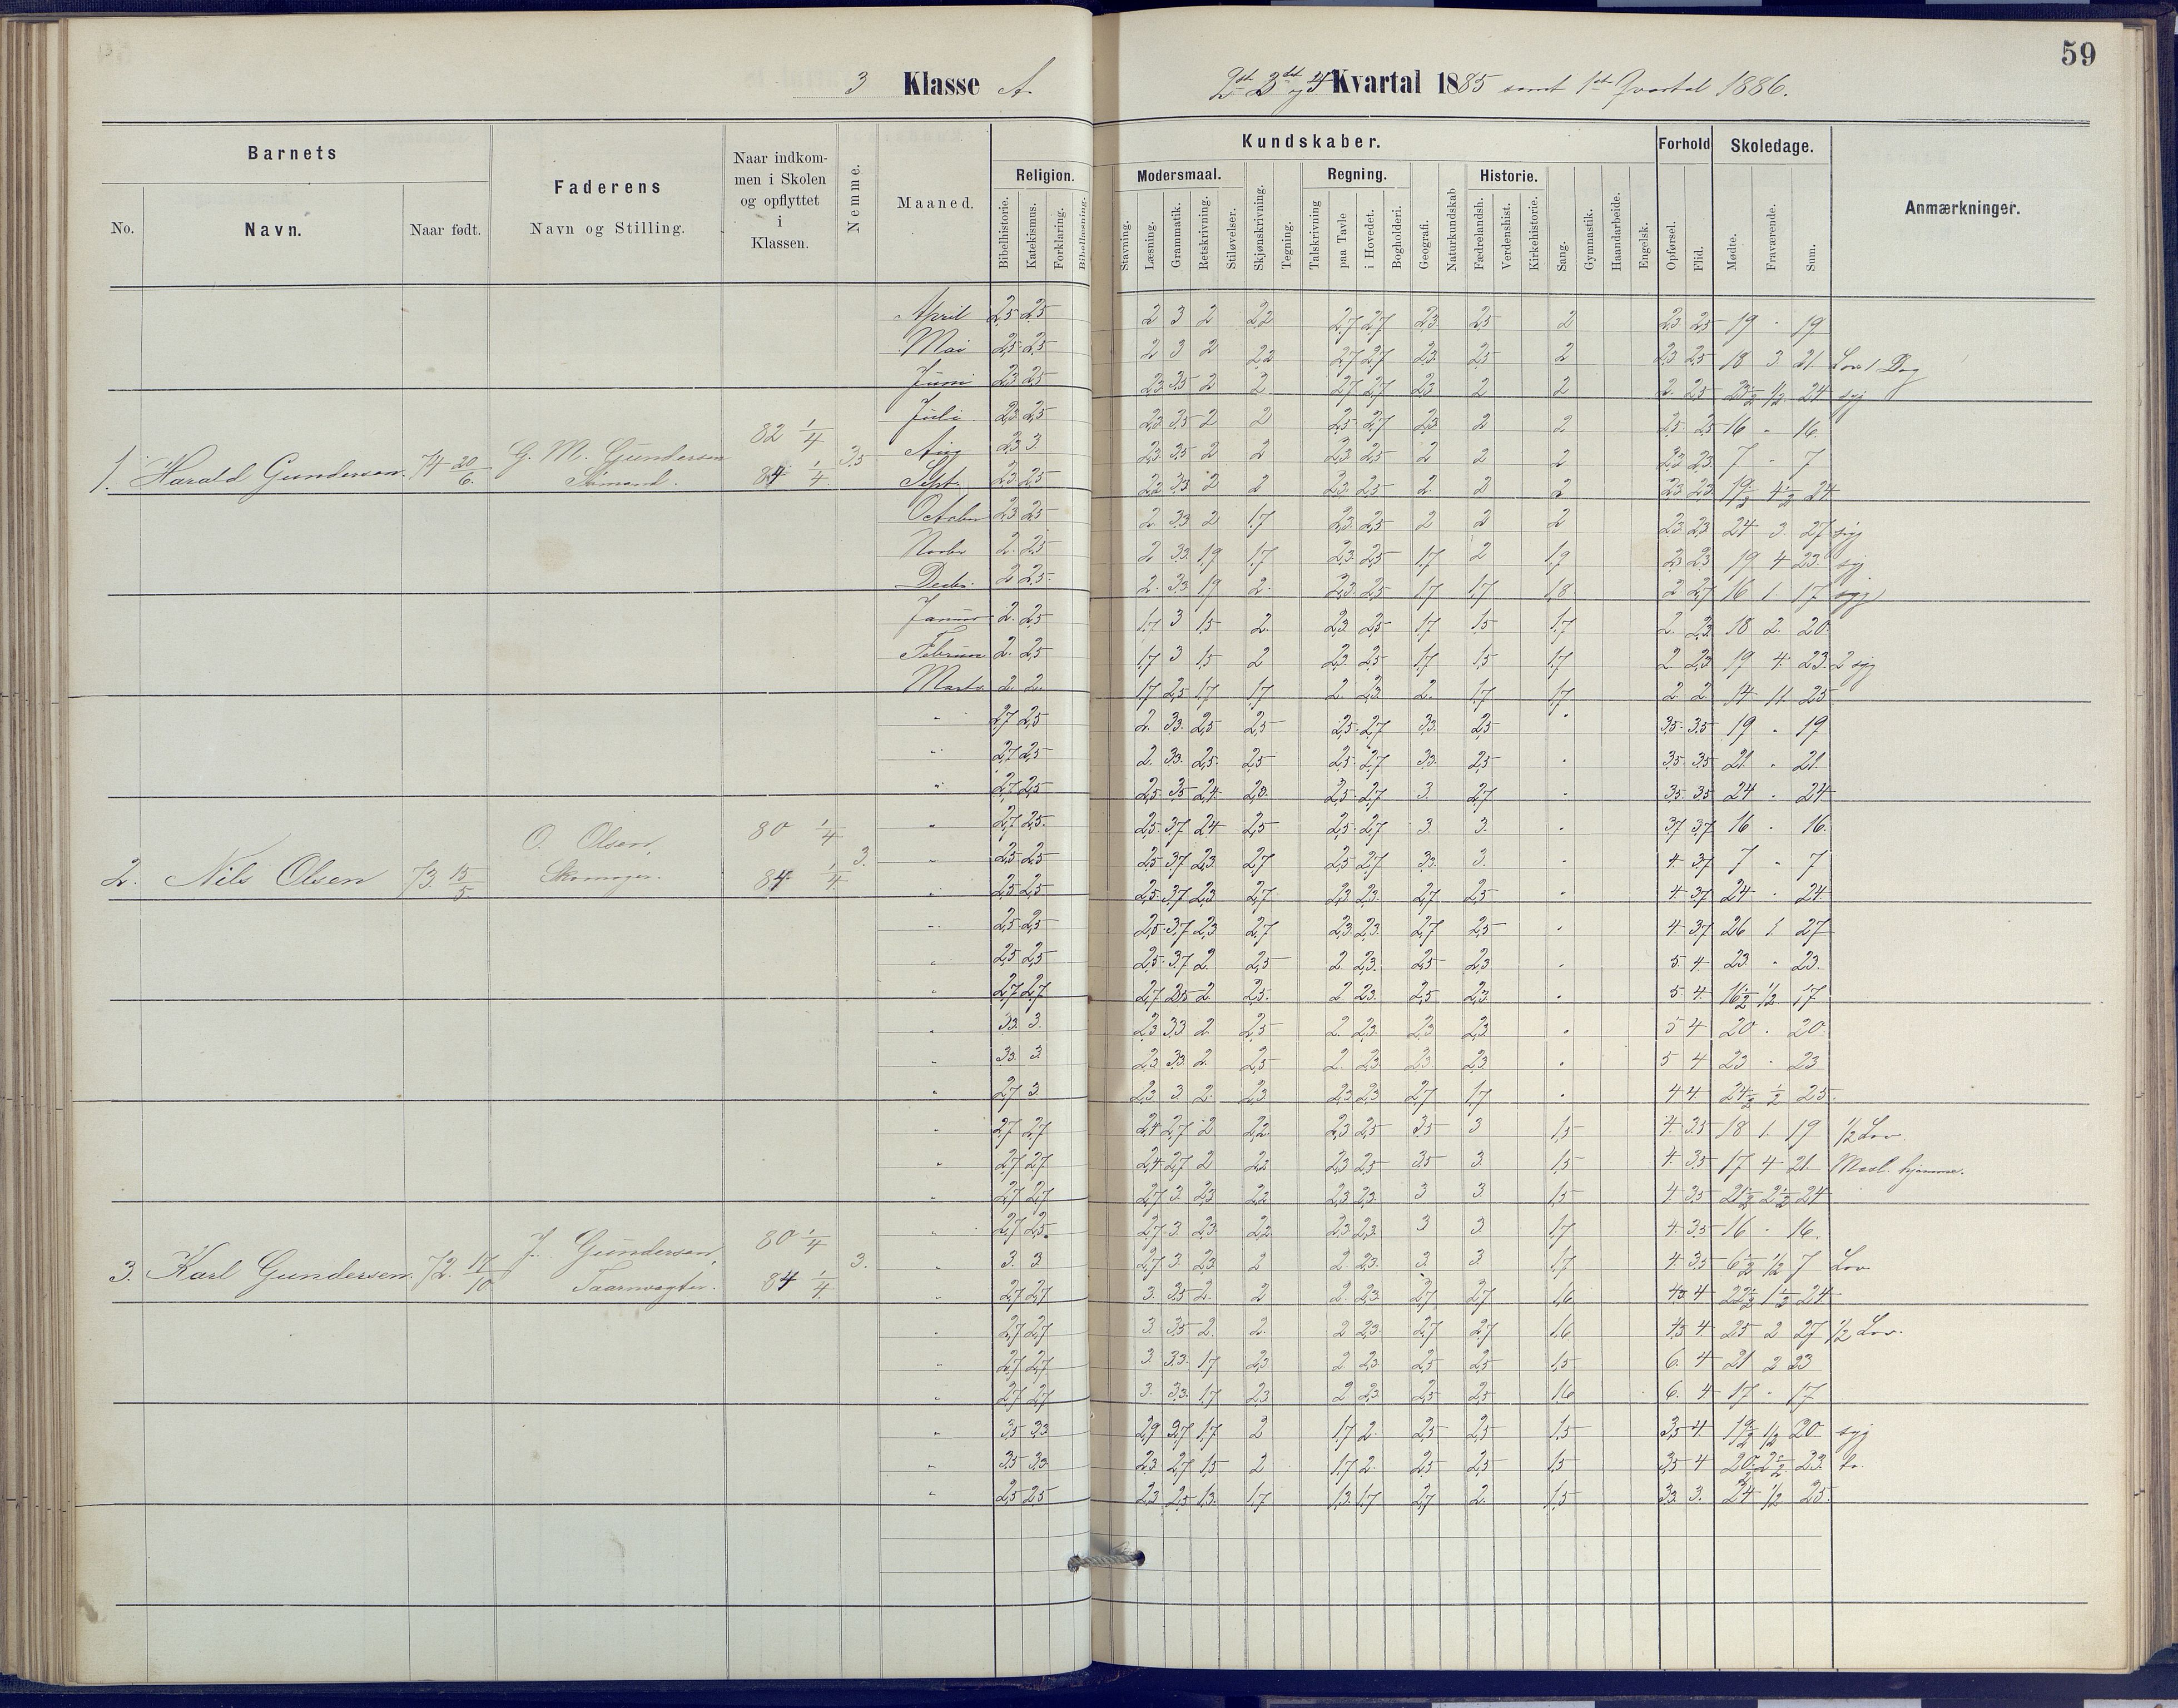 59
3 Klasse A.
2det 3die og 4 Kvartal 1885 samt 1ste Qvartal 1886.
Barnets
No.
Navn.
Naar født.
Faderens
Navn og Stilling.
Naar indkom-
men i Skolen
og opflyttet
i
Klassen.
Nemme.
Maaned.
Kundskaber.
Religion.
Bibelhistorie.
Katekismus.
Forklaring.
Bibellæsning.
Modersmaal.
Stavning.
Læsning.
Grammatik.
Retskrivning.
Stiløvelser.
Skjønskrivning.
Tegning.
Regning.
Talskrivning
paa Tavle
i Hovedet.
Bogholderi.
Geografi.
Naturkundskab
Historie.
Fædrelandsh.
Verdenshist.
Kirkehistorie.
Sang.
Gymnastik.
Haandarbeide.
Engelsk.
Forhold
Opførsel.
Flid.
Skoledage.
Mødte.
Fraværende.
Sum.
Anmærkninger.
1. Harald Gundersen. 74 20/6. G. M. Gundersen Sømand. 82 1/4 84 1/4 3,5
April 2,5 2,5 2 3 2 2,2 2,7 2,7 2,3 2,5 2 2,3 2,5 19 - 19
Mai 2,5 2,5 2 3 2 2,2 2,7 2,7 2,3 2,5 2 2,3 2,5 18 3 21 Lov 1 Dag
Juni 2,3 2,5 2,3 3,5 2 2 2,7 2,7 2,3 2 2 2 2,5 23 1/2 1/2 24 syg
Juli 2,3 2,5 2,3 3,5 2 2 2,5 2,7 2,3 2 2 2,5 2,5 16 - 16
Aug 2,3 3 2,3 3,5 2 2 2,3 2,5 2 2 2 2,3 2,3 7 - 7
Sept. 2,3 2,5 2,2 3,3 2 2 2,3 2,5 2 2 2 2,3 2,3 19 1/2 4 1/2 24
October 2,3 2,5 2 3,3 2 1,7 2,3 2,5 2 2 2 2,3 2,3 24 3 27 syg
Novbr 2 2,5 2 3,3 1,9 1,7 2,3 2,5 1,7 2 1,9 2,3 2,3 19 4 23 syg
Decbr. 2 2,5 2 3,3 1,9 2 2,3 2,5 1,7 1,7 1,8 2 2,7 16 1 17 syg
Januar 2 2,5 1,7 3 1,5 2 2,3 2,5 1,7 1,5 1,7 2 2,3 18 2 20
Februar 2 2,5 1,7 3 1,5 2 2,3 2,5 1,7 1,5 1,7 2 2,3 19 4 23 2 syg
Marts 2 2 1,7 2,5 1,7 1,7 2 2,3 2 1,7 1,7 2 2 14 11 25
2. Nils Olsen 73 15/5 O. Olsen, Skomager. 80 1/4 84 1/4 3.
" 2,7 2,5 2 3,3 2,5 2,5 2,5 2,7 3,3 2,5 - 3,5 3,5 19 - 19
" 2,7 2,5 2 3,3 2,5 2,5 2,5 2,7 3,3 2,5 - 3,5 3,5 21 - 21
" 2,7 2,5 2,5 3,5 2,4 2,3 2,5 2,7 3 2,7 - 3,5 3,5 24 - 24
" 2,7 2,5 2,5 3,7 2,4 2,5 2,5 2,7 3 3 - 3,7 3,7 16 - 16
" 2,5 2,5 2,5 3,7 2,3 2,7 2,5 2,7 3,3 3 - 4 3,7 7 - 7
" 2,5 2,5 2,5 3,7 2,3 2,7 2,3 2,3 2,7 2,5 - 4 3,7 24 - 24
" 2,5 2,5 2,5 3,7 2,3 2,7 2,3 2,3 2,7 2,5 - 4 3,7 26 1 27
" 2,5 2,5 2,5 3,7 2 2,5 2 2,3 2,5 2,3 - 5 4 23 - 23
" 2,7 2,7 2,7 3,5 2 2,5 2 2,3 2,5 2,3 - 5 4 16 1/2 1/2 17
" 3,3 3 2,3 3,3 2 2,5 2 2,3 2,3 2,3 - 5 4 20 - 20
" 3,3 3 2,3 3,3 2 2,5 2 2,3 2,3 2,3 - 5 4 23 - 23
" 2,7 3 2,3 3 2 2,3 2,3 2,3 2,7 1,7 - 4 4 24 1/2 1/2 25
3. Karl Gundersen. 72 17/10 J. Gundersen, Taarnvægter. 80 1/4 84 1/4 3.
" 2,7 2,7 2,4 2,7 2 2,2 2,3 2,5 3,5 3 1,5 4 3,5 18 1 19 1/2 Lov.
" 2,7 2,7 2,4 2,7 2 2,2 2,3 2,5 3,5 3 1,5 4 3,5 17 4 21 hjemme.
" 2,7 2,7 2,7 3 2,3 2,2 2,3 2,3 3 3 1,5 4 3,5 21 1/2 2 1/2 24
" 2,7 2,5 2,7 3 2,3 2,2 2,3 2,3 3 3 1,7 4 3,5 16 - 16
" 3 3 2,7 3 2,3 2 2 2,3 3 3 1,7 4 3,5 6 1/2 1/2 7 Lov
" 2,7 2,7 3 3,5 2 2 2 2,3 2,7 2,7 1,6 4,3 4 22 1/2 1 1/2 24
" 2,7 2,7 3 3,5 2 2 2 2,3 2,7 2,7 1,6 4,3 4 25 2 27 1/2 Lov.
" 2,7 2,7 3 3,3 1,7 2,3 2 2,3 2,5 2,5 1,5 6 4 21 2 23
" 2,7 2,7 3 3,3 1,7 2,3 2 2,3 2,5 2,5 1,6 6 4 17 - 17
" 3,5 3,3 2,9 3,7 1,7 2 1,7 2 2,5 2,5 1,5 3,5 4 19 1/2 1/2 20 syg
" 3,5 3,3 2,3 2,7 1,5 2 1,7 2 2,5 2,5 1,5 3,5 4 20 1/2 2 1/2 23
" 2,5 2,5 2,3 2,5 1,3 1,7 1,3 1,7 2,7 2 1,5 3,3 3 24 1/2 25